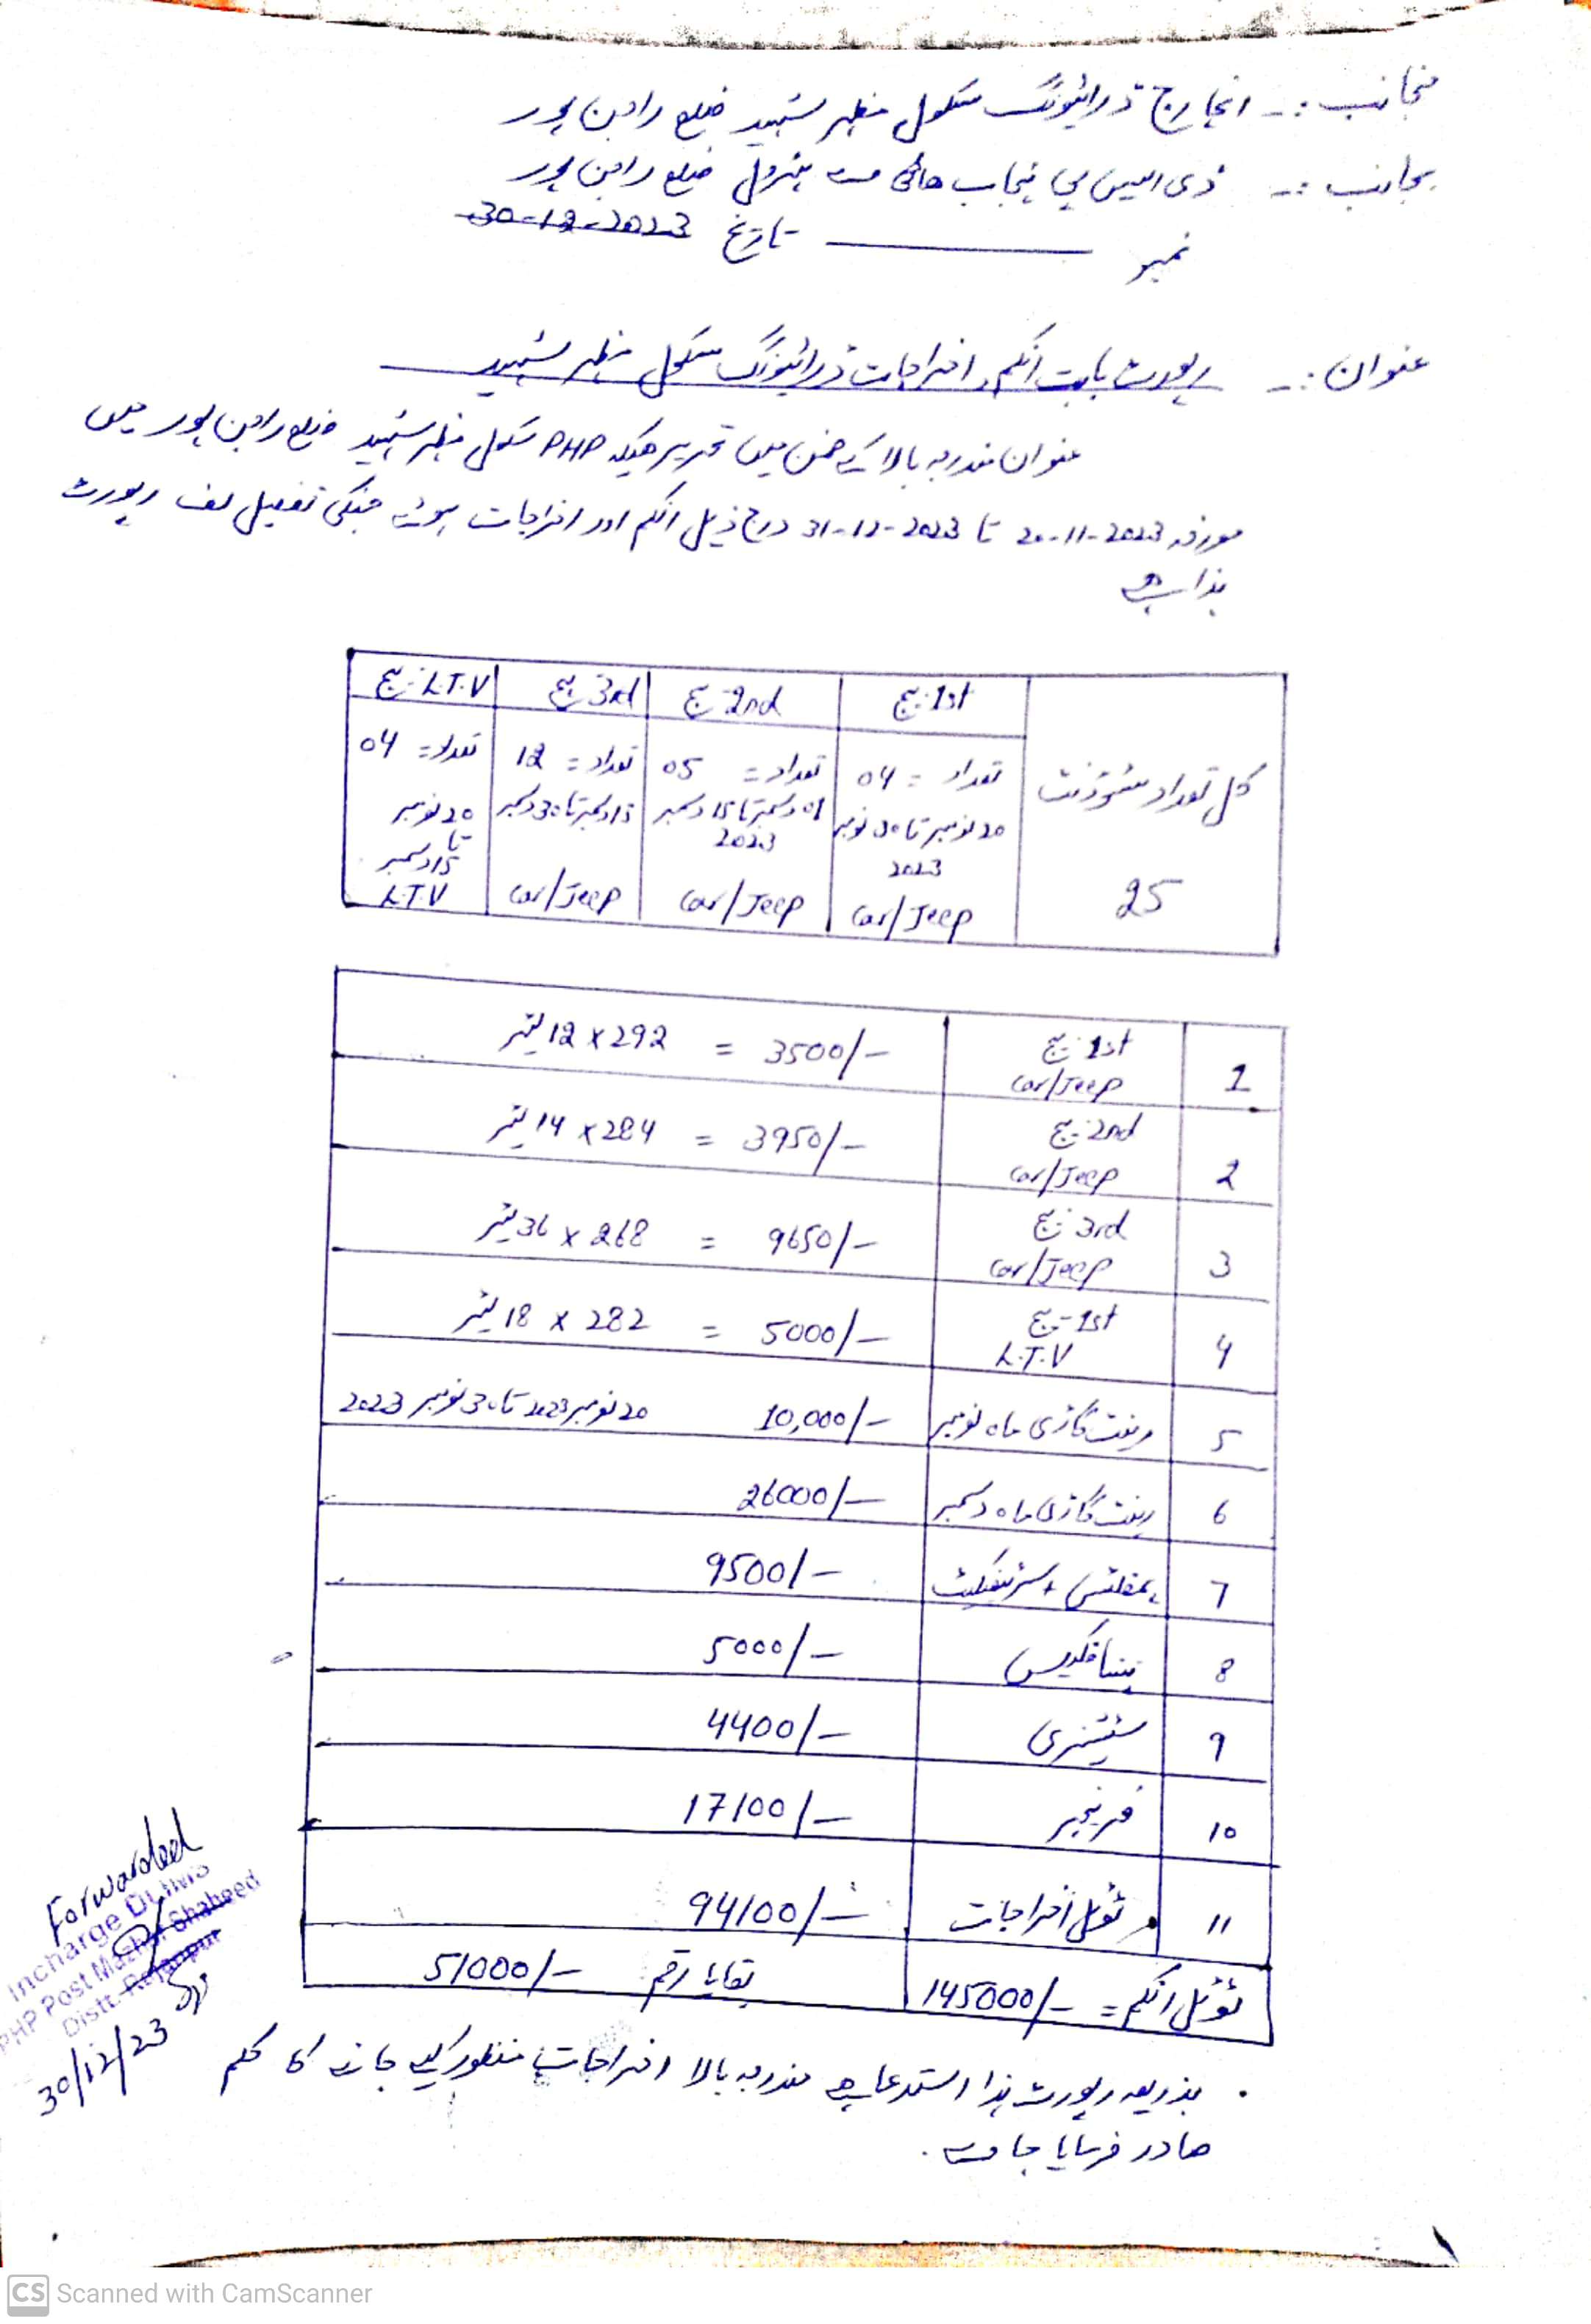 منجانب :- انچارج ڈرائیونگ سکول مظہر شہید ضلع راجن پور
بجانب :- ڈی ایس پی پنجاب ہائی وے پٹرول ضلع راجن پور
نمبر ______ تاریخ 30-12-2023
عنوان :- رپورٹ بابت انکم، اخراجات ڈرائیونگ سکول مظہر شہید
عنوان مندرجہ بالا کے ضمن میں تحریر ہیکہ PHP سکول مظہر شہید ضلع راجن پور میں
مورخہ 20-11-2023 تا 31-12-2023 درج ذیل انکم اور اخراجات ہوئے جنکی تفصیل لف رپورٹ
ہذا ہے
کل تعداد سٹوڈنٹ 25
1st بیچ تعداد = 04 20 نومبر تا 30 نومبر 2023 Car/Jeep
2nd بیچ تعداد = 05 01 دسمبر تا 15 دسمبر 2023 Car/Jeep
3rd بیچ تعداد = 12 15 دسمبر تا 30 دسمبر Car/Jeep
L.T.V بیچ تعداد = 04 20 نومبر تا 15 دسمبر L.T.V
1 1st بیچ Car/Jeep 3500/- = 292 x 12 لیٹر
2 2nd بیچ Car/Jeep 3950/- = 284 x 14 لیٹر
3 3rd بیچ Car/Jeep 9650/- = 268 x 36 لیٹر
4 1st بیچ L.T.V 5000/- = 282 x 18 لیٹر
5 رینٹ گاڑی ماہ نومبر 10,000/- 20 نومبر 2023 تا 30 نومبر 2023
6 رینٹ گاڑی ماہ دسمبر 26000/-
7 پمفلٹس + سرٹیفکیٹ 9500/-
8 پینا فلیکس 5000/-
9 سٹیشنری 4400/-
10 فرنیچر 17100/-
11 ٹوٹل اخراجات 94100/-
ٹوٹل انکم = 145000/- بقایا رقم 51000/-
بذریعہ رپورٹ ہذا استدعا ہے مندرجہ بالا اخراجات منظور کیے جانے کا حکم
صادر فرمایا جاوے۔
Forwarded
Incharge
PHP Post Mazhar Shaheed
Distt. Rajanpur
30/12/23
CS Scanned with CamScanner